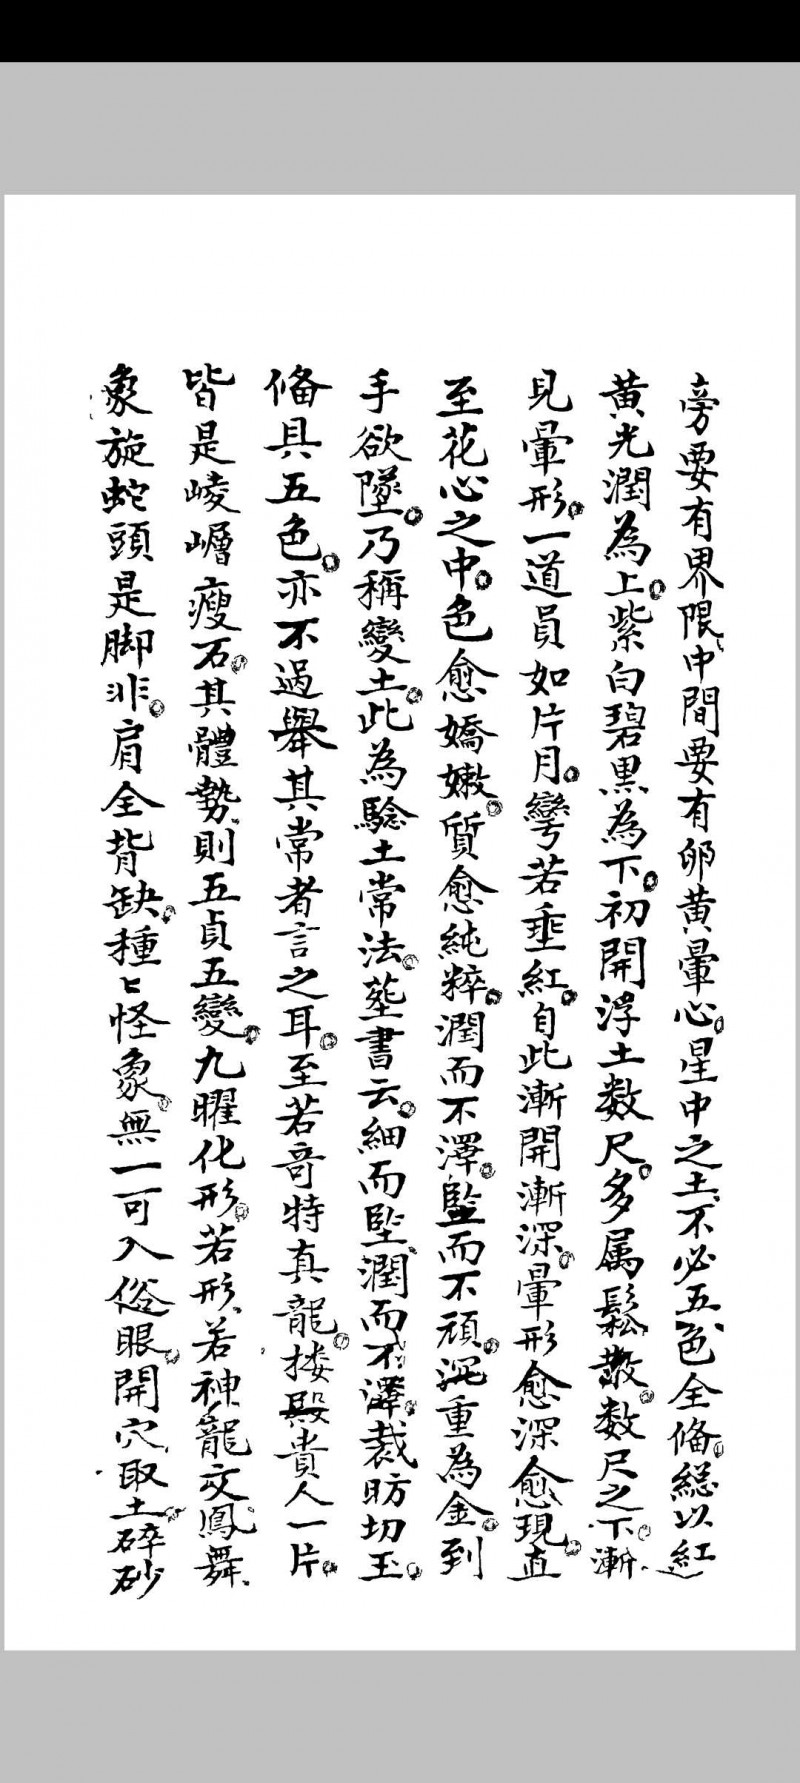 旁要有界限、中間要有卵黃暈心。星中之土、不必五色全俻。緫以紅
黃光潤為上。紫白碧黒為下。初開浮土数尺。多属鬆散。数尺之下。漸
見暈形。一道員如片月。彎若垂紅。自此漸開漸深。暈形愈深愈現。直
至花心之中。色愈嬌嫩。質愈純粹。潤而不澤。堅而不頑。沉重為金。到
手欲墜。乃稱變土。此為驗土常法。塟書云。細而堅、潤而不澤。裁肪切玉。
俻具五色。亦不過舉其常者言之耳。至若奇特真龍。楼殿貴人一片。
皆是崚嶒瘦石。其體勢、則五貞五變。九曜化形。若形、若神龍交鳳舞、
象旋蛇頭是脚非。肩全背缺。種〻怪象。無一可入俗眼。開穴取土。碎砂